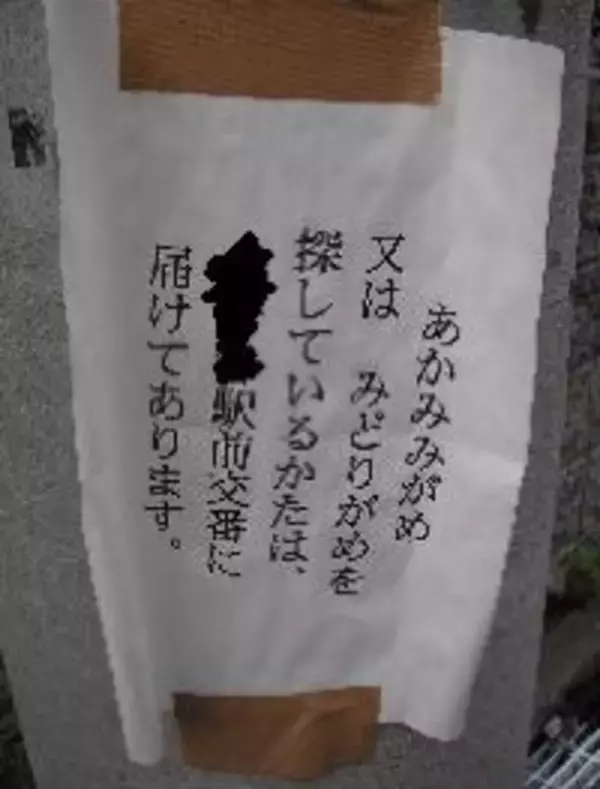 あかみみがめ
又は　みどりがめを
探しているかたは、
駅前交番に
届けてあります。